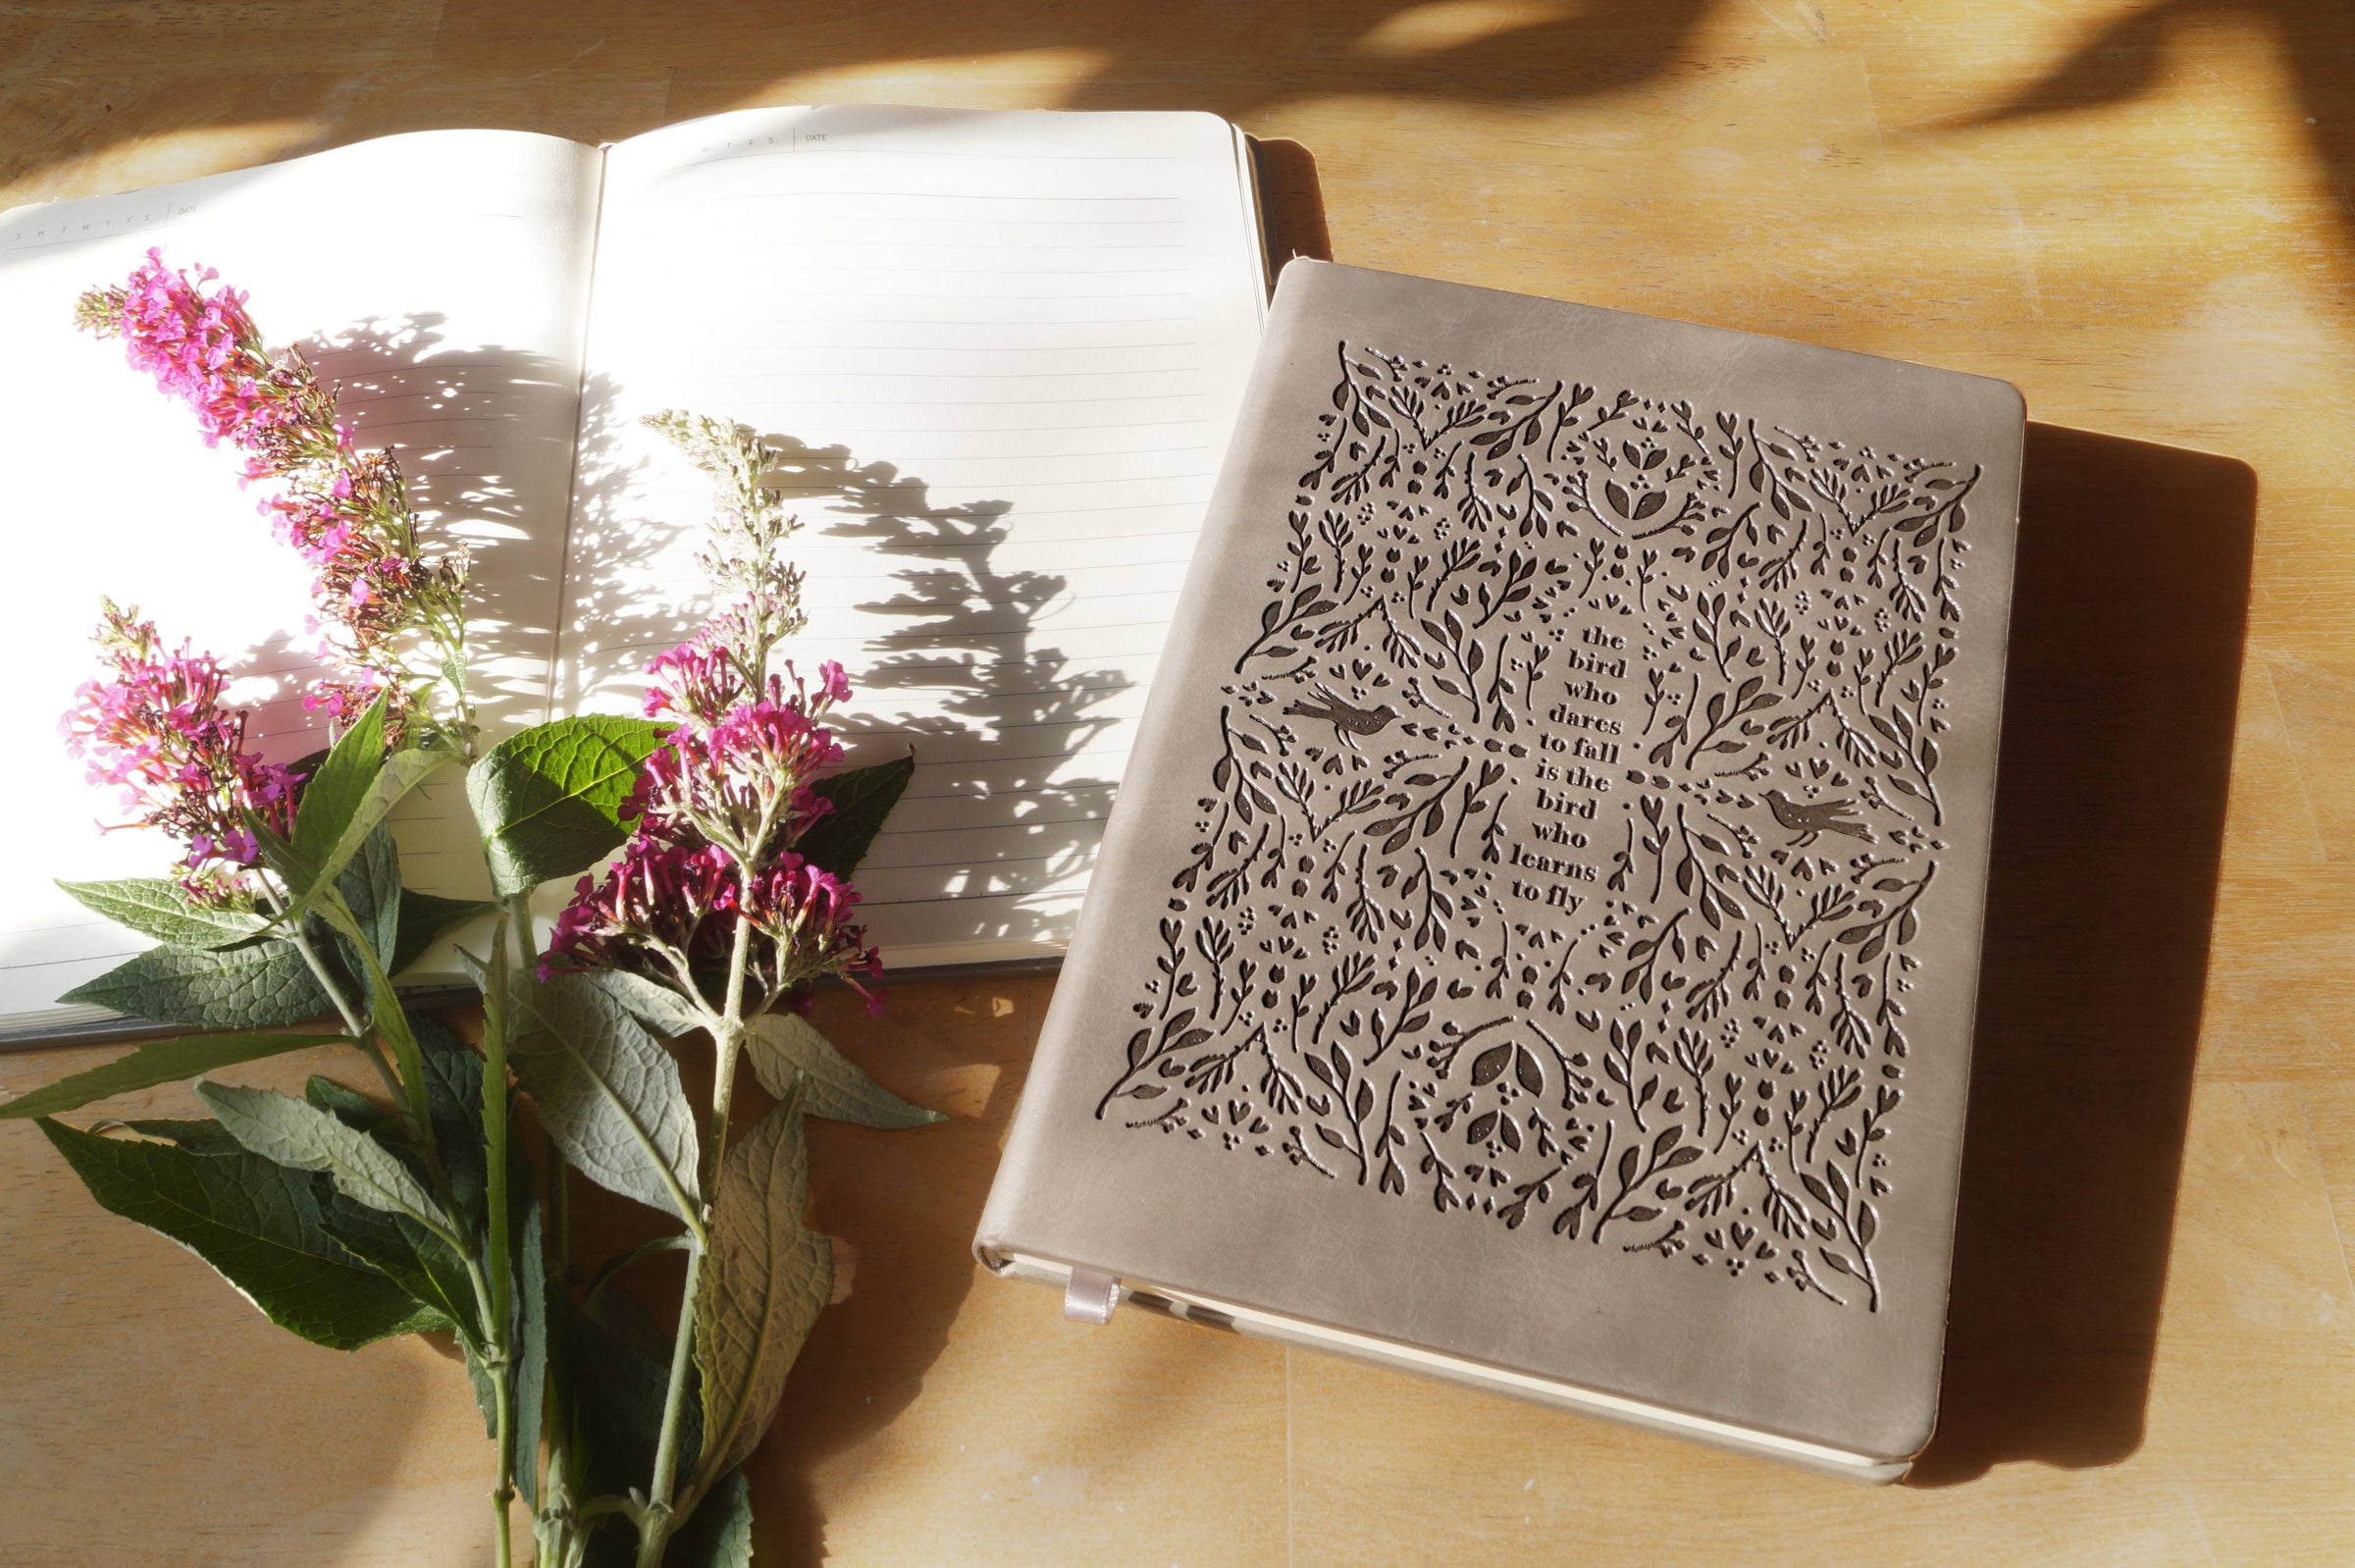 S M T W T F S DATE
W T F S DATE
the
bird
who
dares
to fall
is the
bird
who
learns
to fly